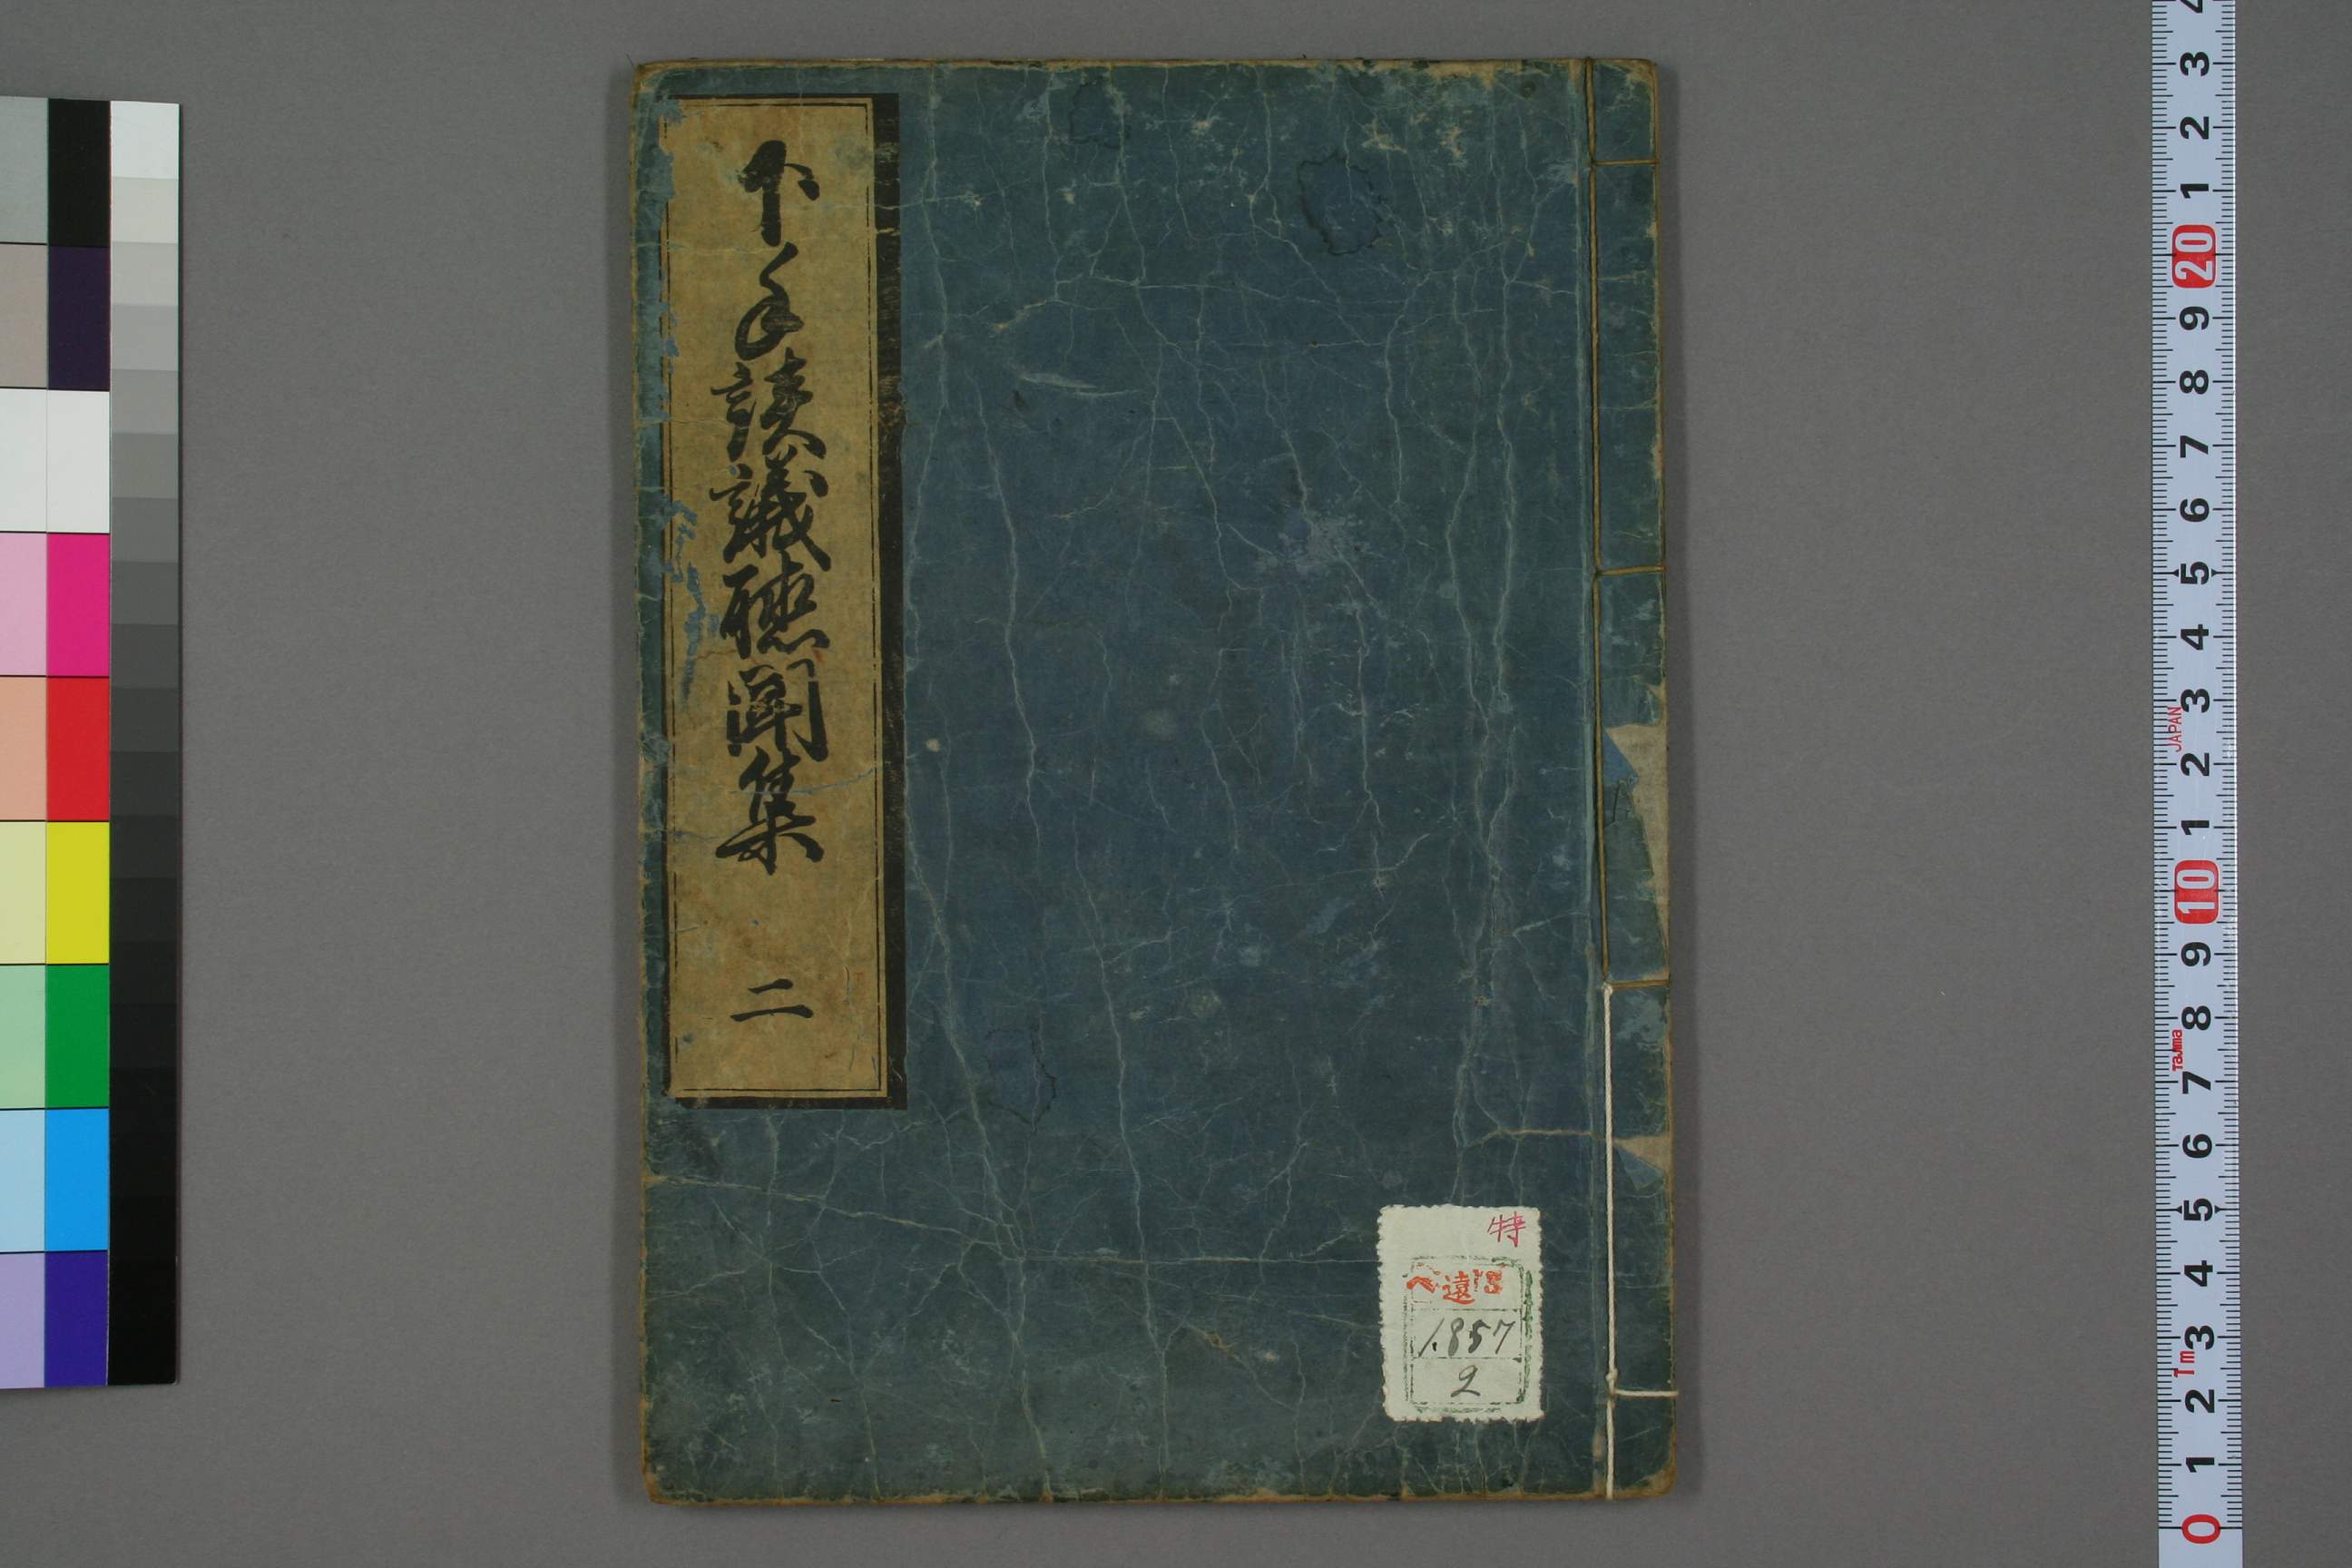 下手談議聴聞集
二
特
ヘ遠13
1857
2
4
3
2
1
20
9
8
7
6
5
4
3
JAPAN
2
1
10
9
8
Tajima
7
6
5
4
3
1m
2
1
0